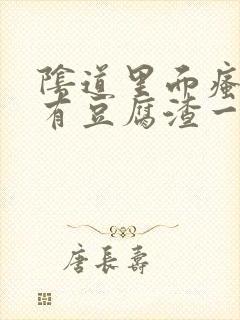 陰道里面瘙
有豆腐渣一
唐長壽